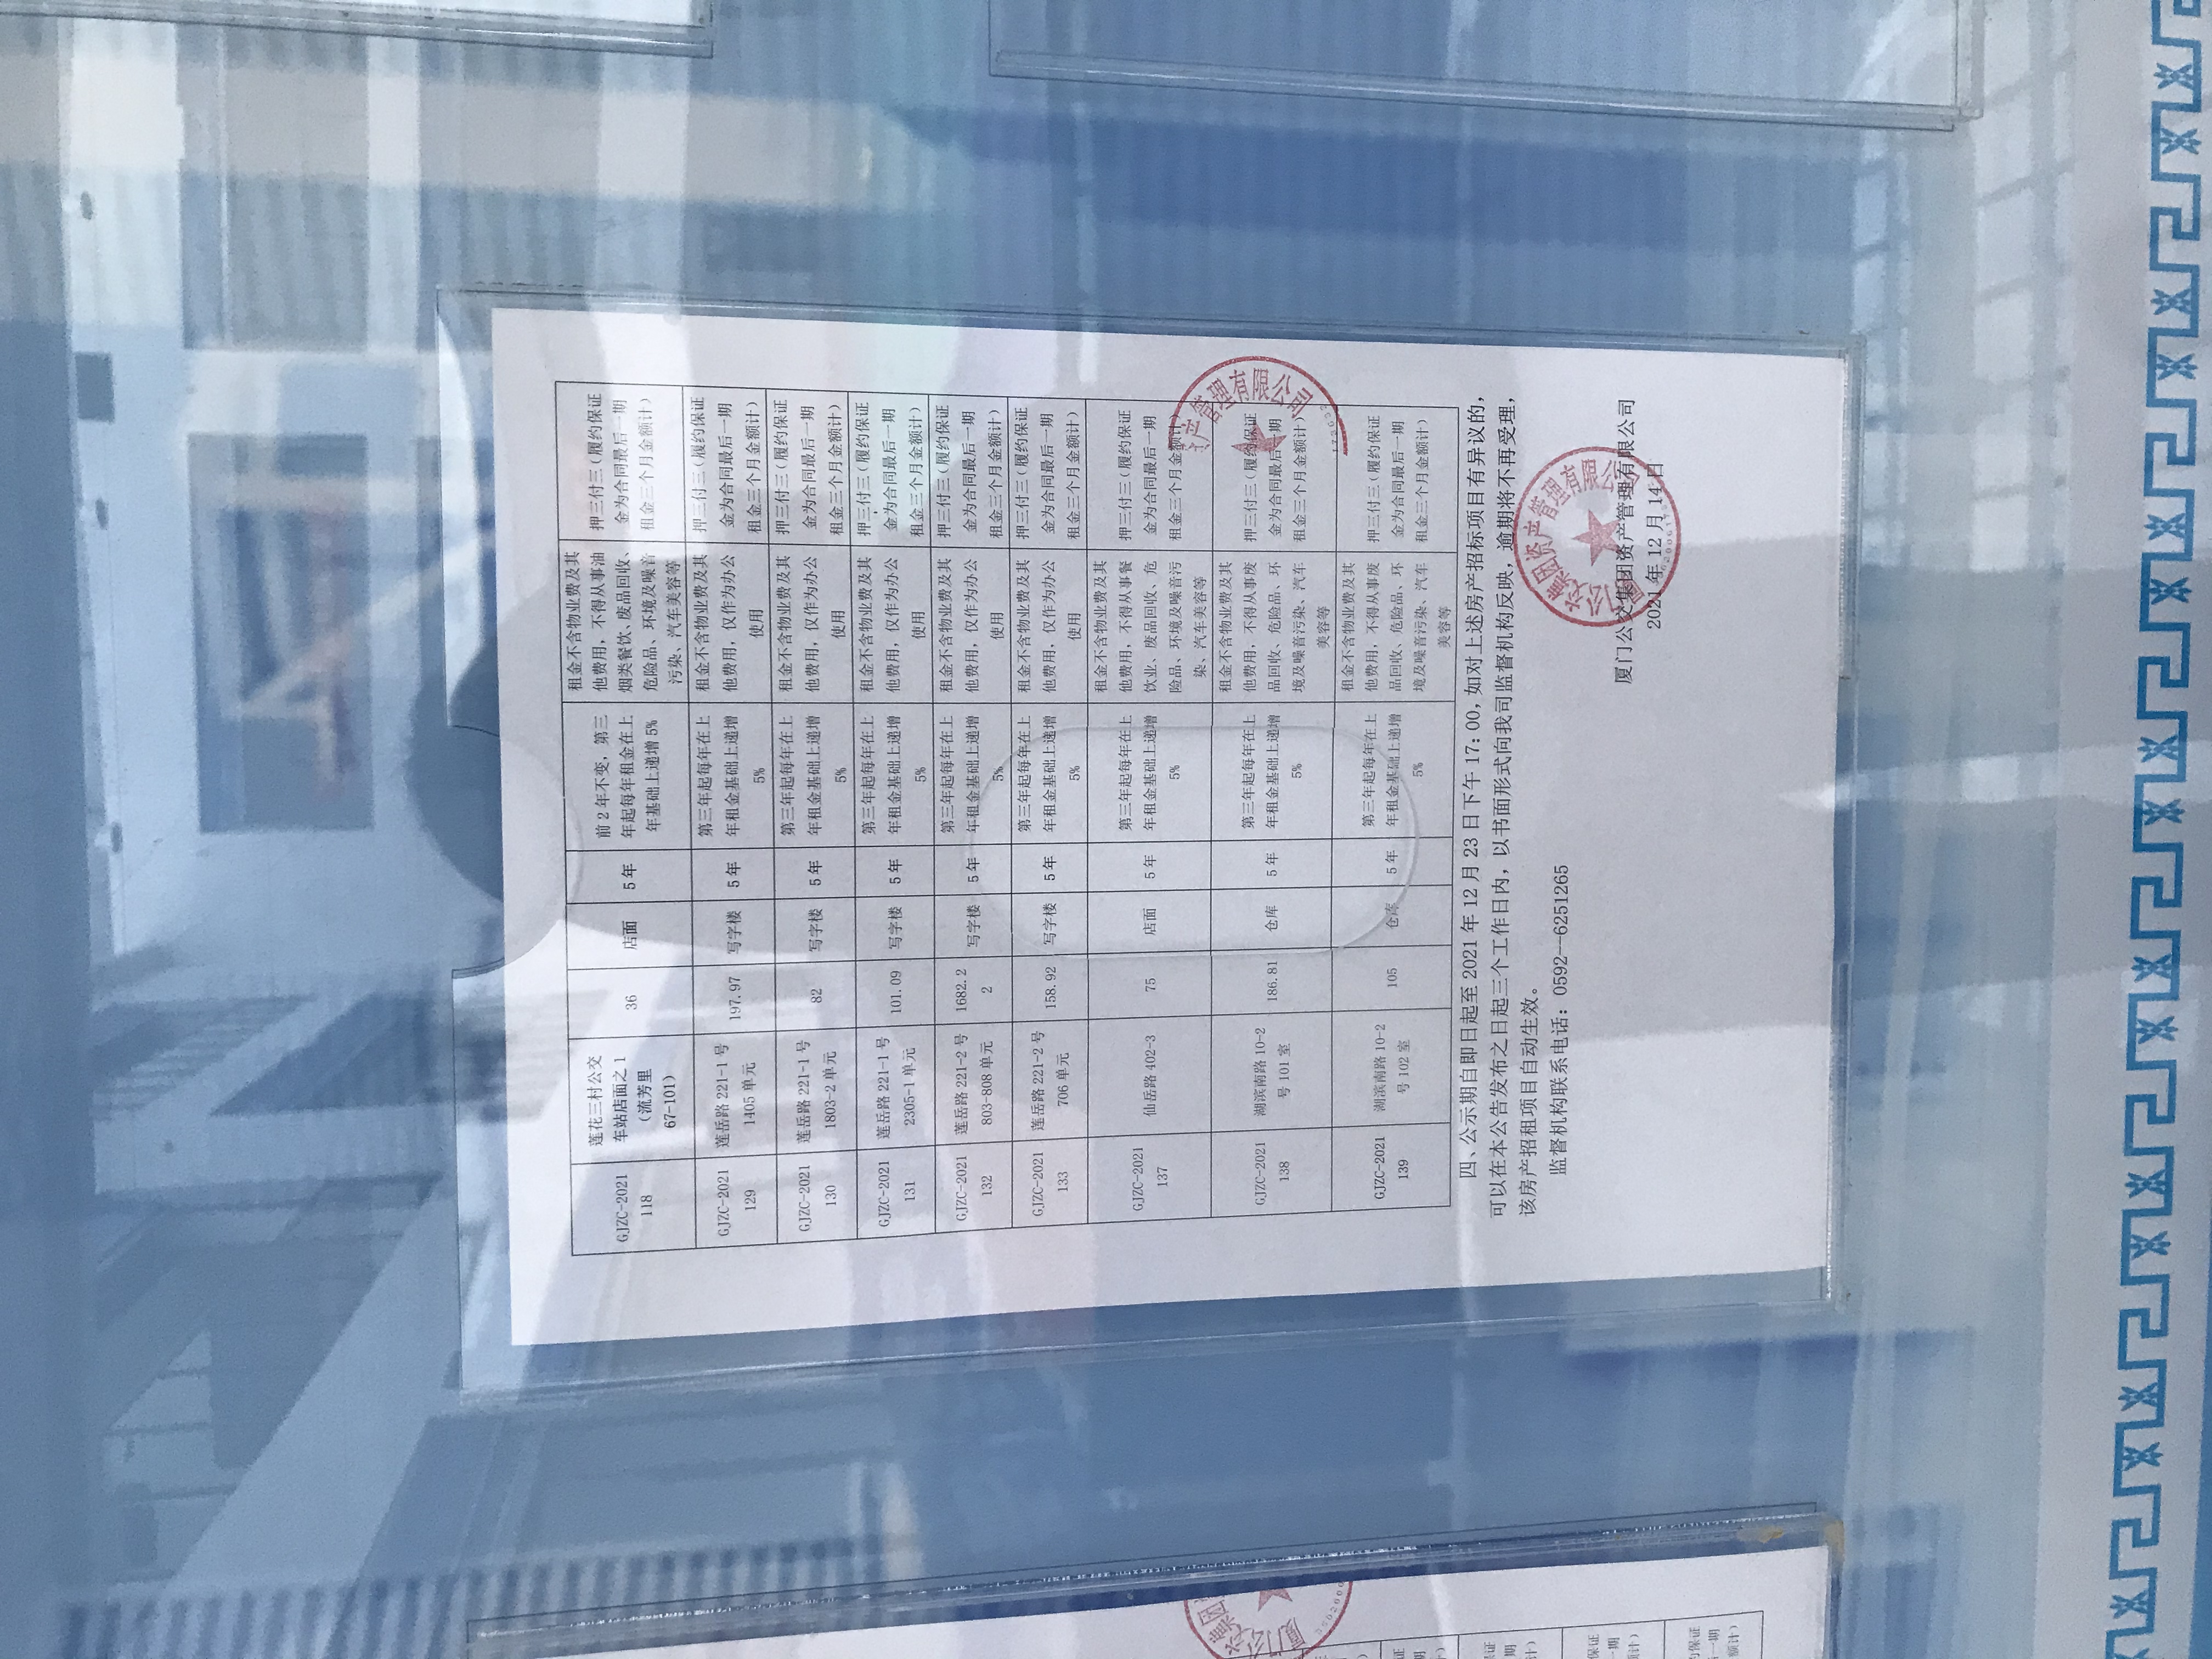 GJZC-2021
118
莲花三村公交
车站店面之1
（流芳里
67-101）
36
店面
5年
前2年不变，第三
年起每年租金在上
年基础上递增5%
租金不含物业费及其
他费用，不得从事油
烟类餐饮、废品回收、
危险品、环境及噪音
污染、汽车美容等
押三付三（履约保证
金为合同最后一期
租金三个月金额计）
GJZC-2021
129
莲岳路221-1号
1405单元
197.97
写字楼
5年
第三年起每年在上
年租金基础上递增
5%
租金不含物业费及其
他费用，仅作为办公
使用
押三付三（履约保证
金为合同最后一期
租金三个月金额计）
GJZC-2021
130
莲岳路221-1号
1803-2单元
82
写字楼
5年
第三年起每年在上
年租金基础上递增
5%
租金不含物业费及其
他费用，仅作为办公
使用
押三付三（履约保证
金为合同最后一期
租金三个月金额计）
GJZC-2021
131
莲岳路221-1号
2305-1单元
101.09
写字楼
5年
第三年起每年在上
年租金基础上递增
5%
租金不含物业费及其
他费用，仅作为办公
使用
押三付三（履约保证
金为合同最后一期
租金三个月金额计）
GJZC-2021
132
莲岳路221-2号
803-808单元
1682.2
2
写字楼
5年
第三年起每年在上
年租金基础上递增
5%
租金不含物业费及其
他费用，仅作为办公
使用
押三付三（履约保证
金为合同最后一期
租金三个月金额计）
GJZC-2021
133
莲岳路221-2号
706单元
158.92
写字楼
5年
第三年起每年在上
年租金基础上递增
5%
租金不含物业费及其
他费用，仅作为办公
使用
押三付三（履约保证
金为合同最后一期
租金三个月金额计）
GJZC-2021
137
仙岳路402-3
75
店面
5年
第三年起每年在上
年租金基础上递增
5%
租金不含物业费及其
他费用，不得从事餐
饮业、废品回收、危
险品、环境及噪音污
染、汽车美容等
押三付三（履约保证
金为合同最后一期
租金三个月金额计）
GJZC-2021
138
湖滨南路10-2
号101室
186.81
仓库
5年
第三年起每年在上
年租金基础上递增
5%
租金不含物业费及其
他费用，不得从事废
品回收、危险品、环
境及噪音污染、汽车
美容等
押三付三（履约保证
金为合同最后一期
租金三个月金额计）
GJZC-2021
139
湖滨南路10-2
号102室
105
仓库
5年
第三年起每年在上
年租金基础上递增
5%
租金不含物业费及其
他费用，不得从事废
品回收、危险品、环
境及噪音污染、汽车
美容等
押三付三（履约保证
金为合同最后一期
租金三个月金额计）
产管理有限公司
四、公示期自即日起至2021年12月23日下午17:00，如对上述房产招标项目有异议的，
可以在本公告发布之日起三个工作日内，以书面形式向我司监督机构反映，逾期将不再受理，
该房产招租项目自动生效。
监督机构联系电话：0592--6251265
厦门公交集团资产管理有限公司
2021年12月14日